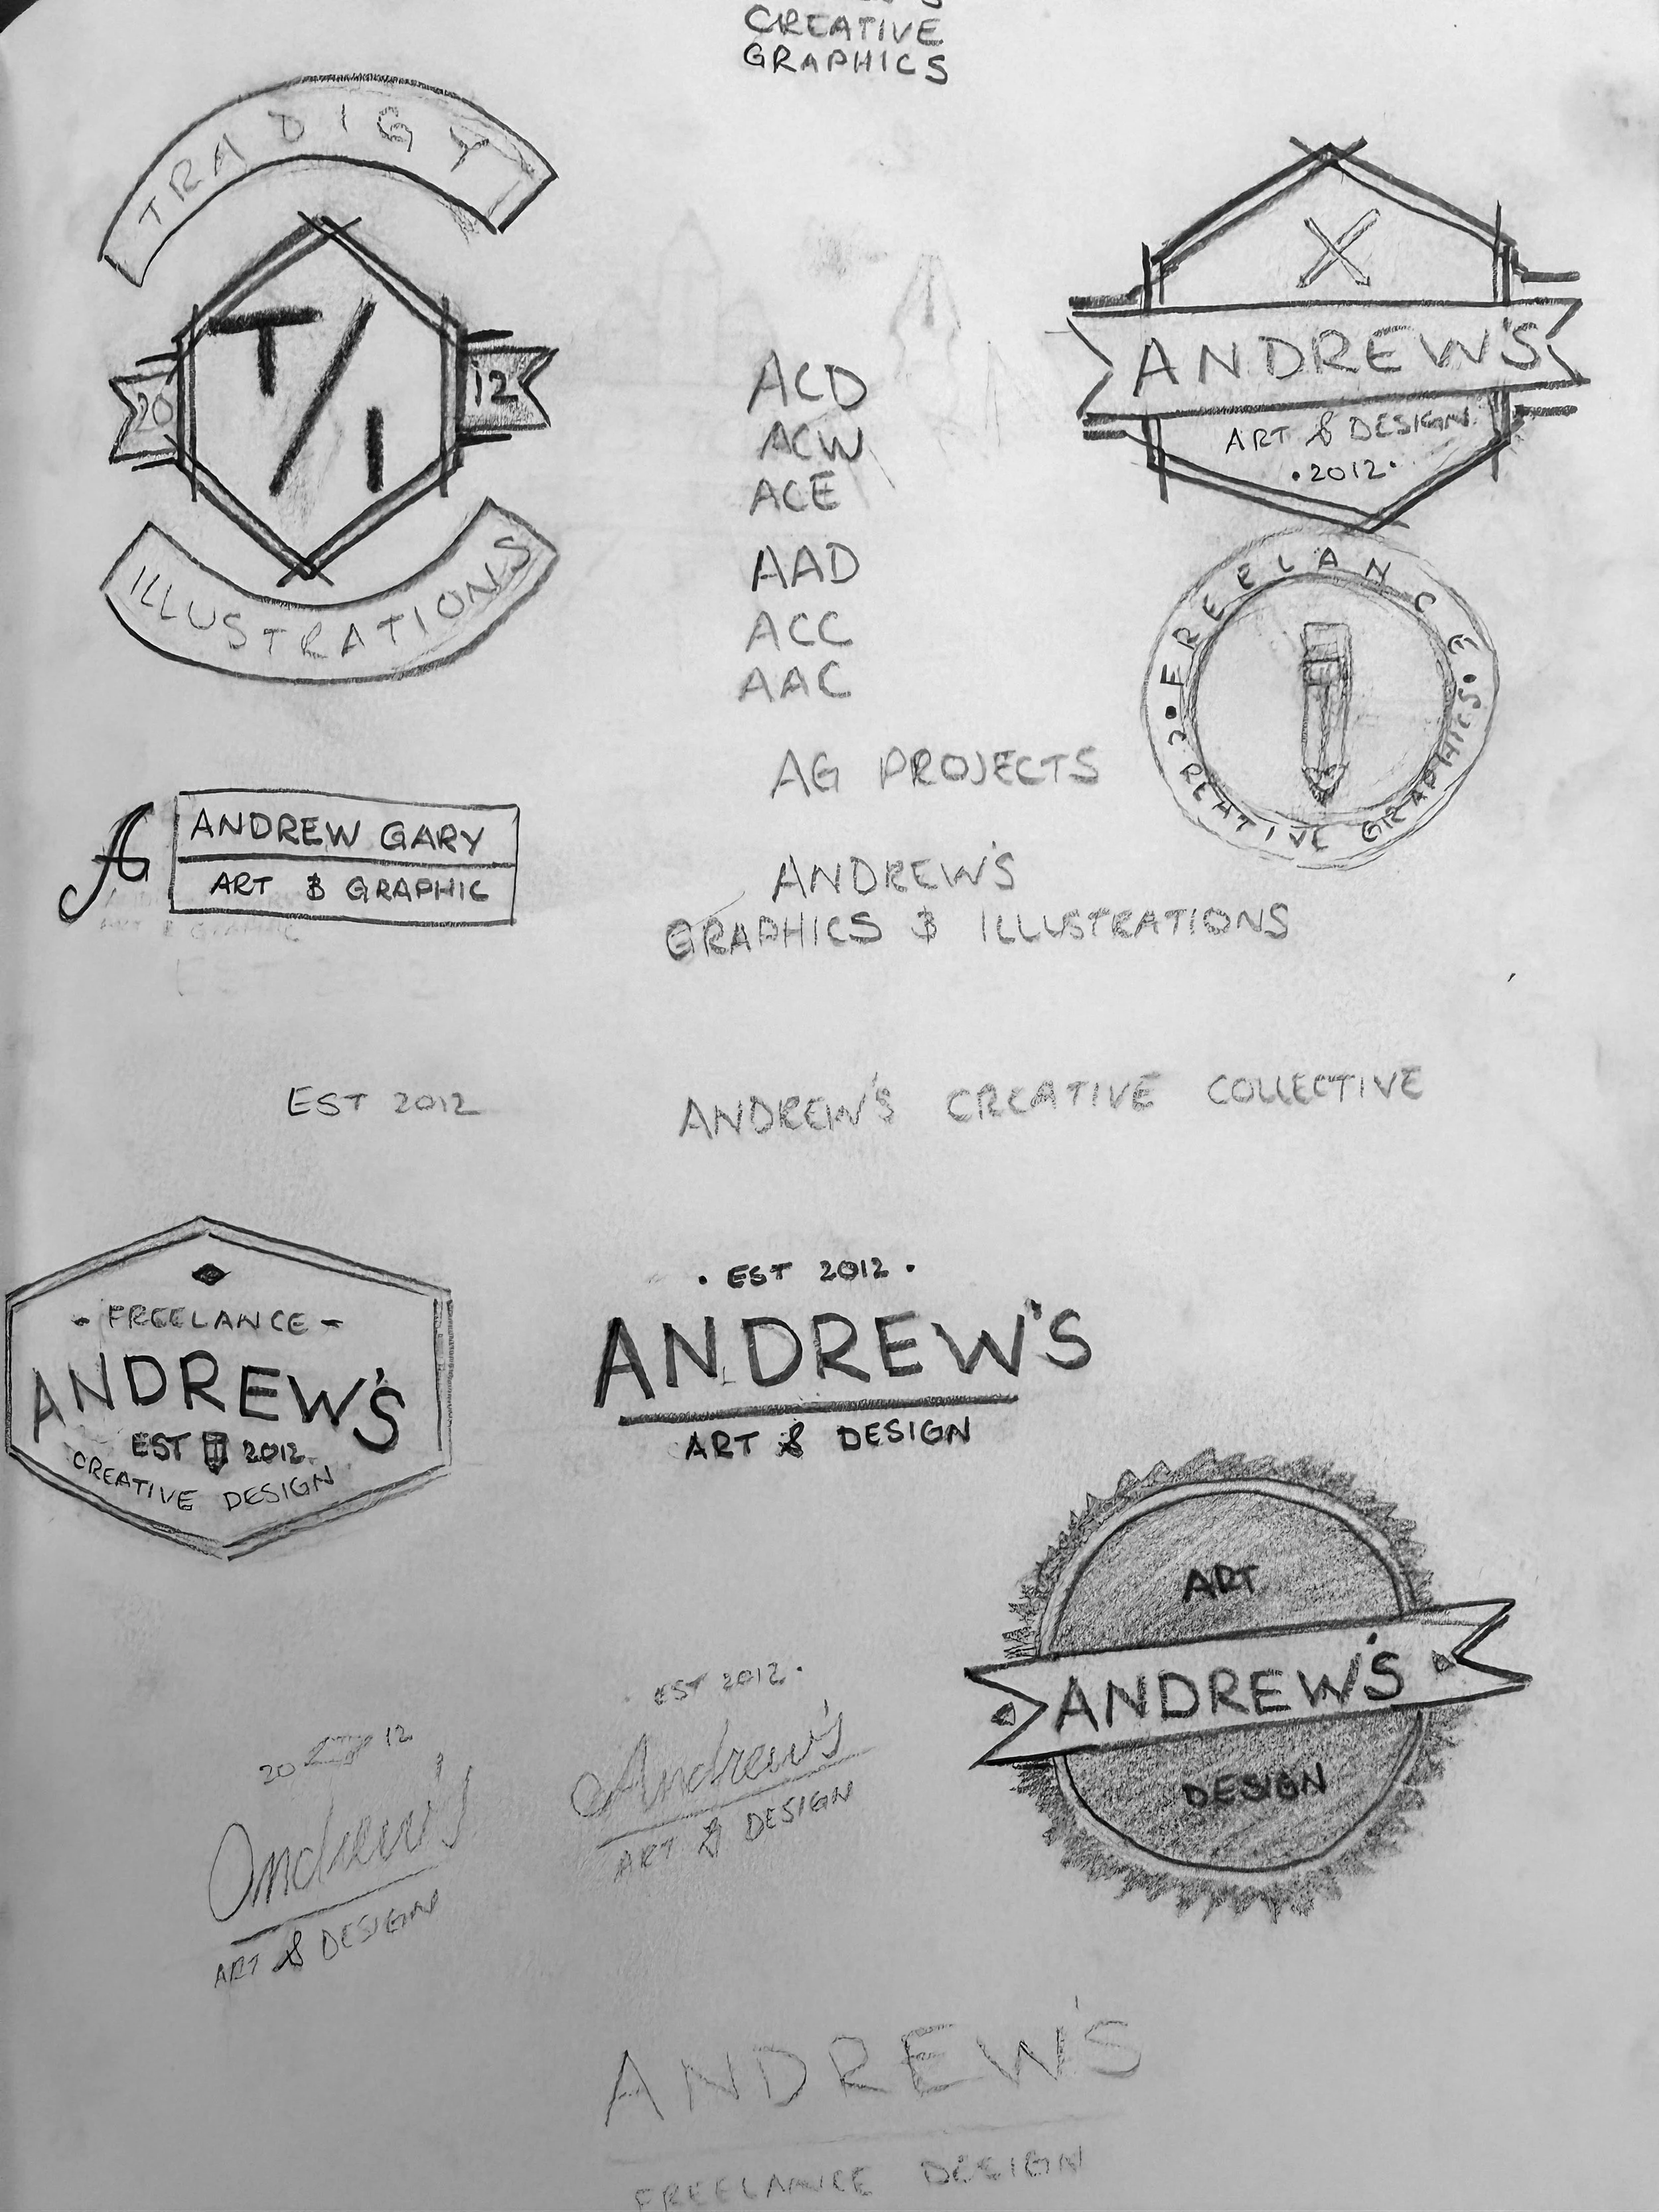 CREATIVE
GRAPHICS
TRADIGY
T/I
20
12
ILLUSTRATIONS
ANDREW'S
ART & DESIGN
·2012·
ACD
ACW
ACE
AAD
ACC
AAC
FREELANCE
CREATIVE GRAPHICS
AG PROJECTS
AG
ANDREW GARY
ART & GRAPHIC
ART & GRAPHIC
ANDREW'S
GRAPHICS & ILLUSTRATIONS
EST 2012
ANDREW'S CREATIVE COLLECTIVE
- FREELANCE -
ANDREW'S
EST 2012
CREATIVE DESIGN
· EST 2012 ·
ANDREW'S
ART & DESIGN
ART
ANDREW'S
DESIGN
20 12
Andrew's
ART & DESIGN
· EST 2012 ·
Andrew's
ART & DESIGN
ANDREW'S
FREELANCE DESIGN